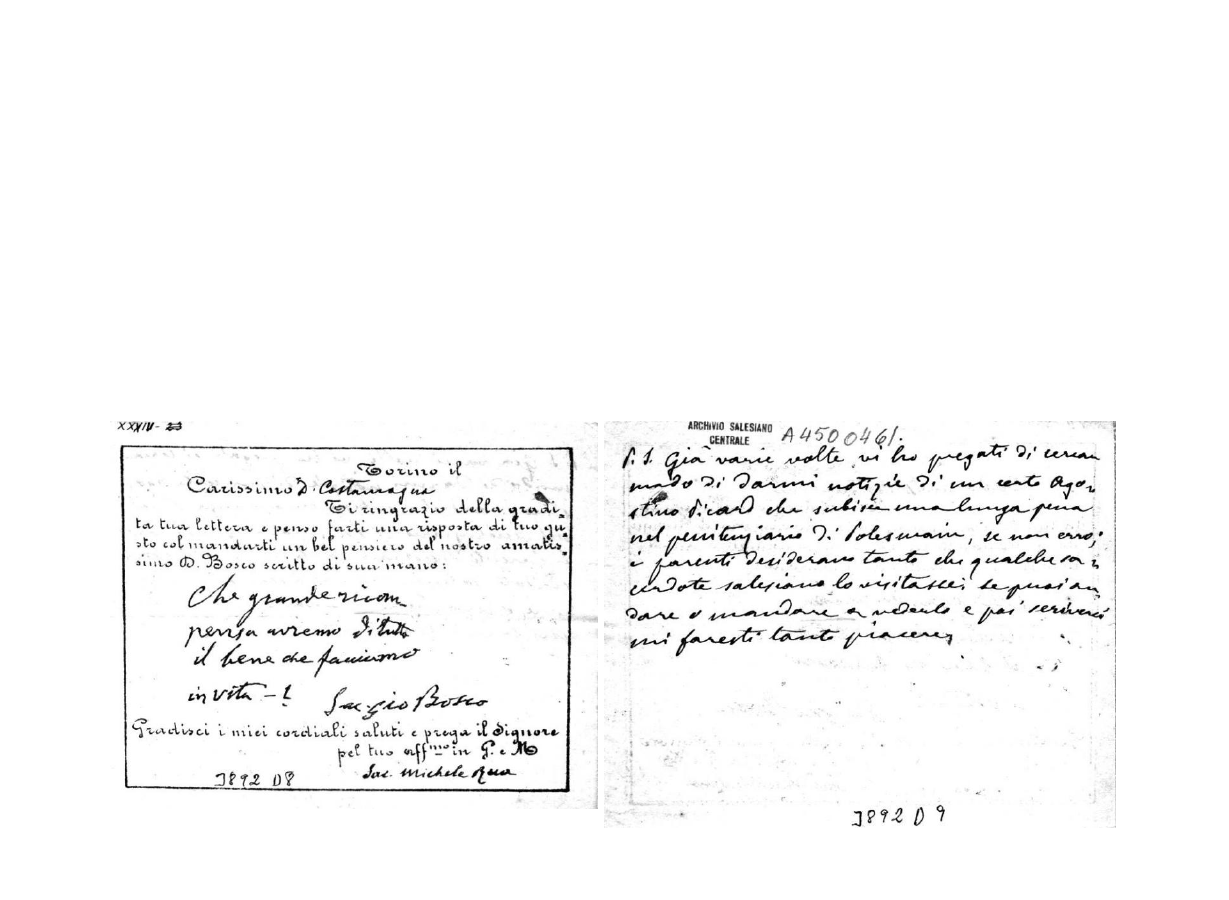 XXXIV - 23
Torino il
Carissimo D. Costamagna
Ti ringrazio della gradi-
ta tua lettera e penso farti una risposta di tuo gu-
sto col mandarti un bel pensiero del nostro amatis-
simo D. Bosco scritto di sua mano:
Che grande ricom
pensa avremo di tutto
il bene che facciamo
in vita - !
Sac. Gio Bosco
Gradisci i miei cordiali saluti e prega il Signore
pel tuo aff.mo in G. e M
Sac. Michele Rua
3892 D8
ARCHIVIO SALESIANO
CENTRALE
A4500461.
P. S. Già varie volte vi ho pregati di
di darmi notizie di un certo Ago-
stino Picard che una lunga pena
nel penitenziario di , se non erro;
i parenti desiderano tanto che qualche sa-
cerdote salesiano lo visitasse; se puoi an
dare o mandare a vederlo e poi
mi faresti tanto piacere
3892 D 9